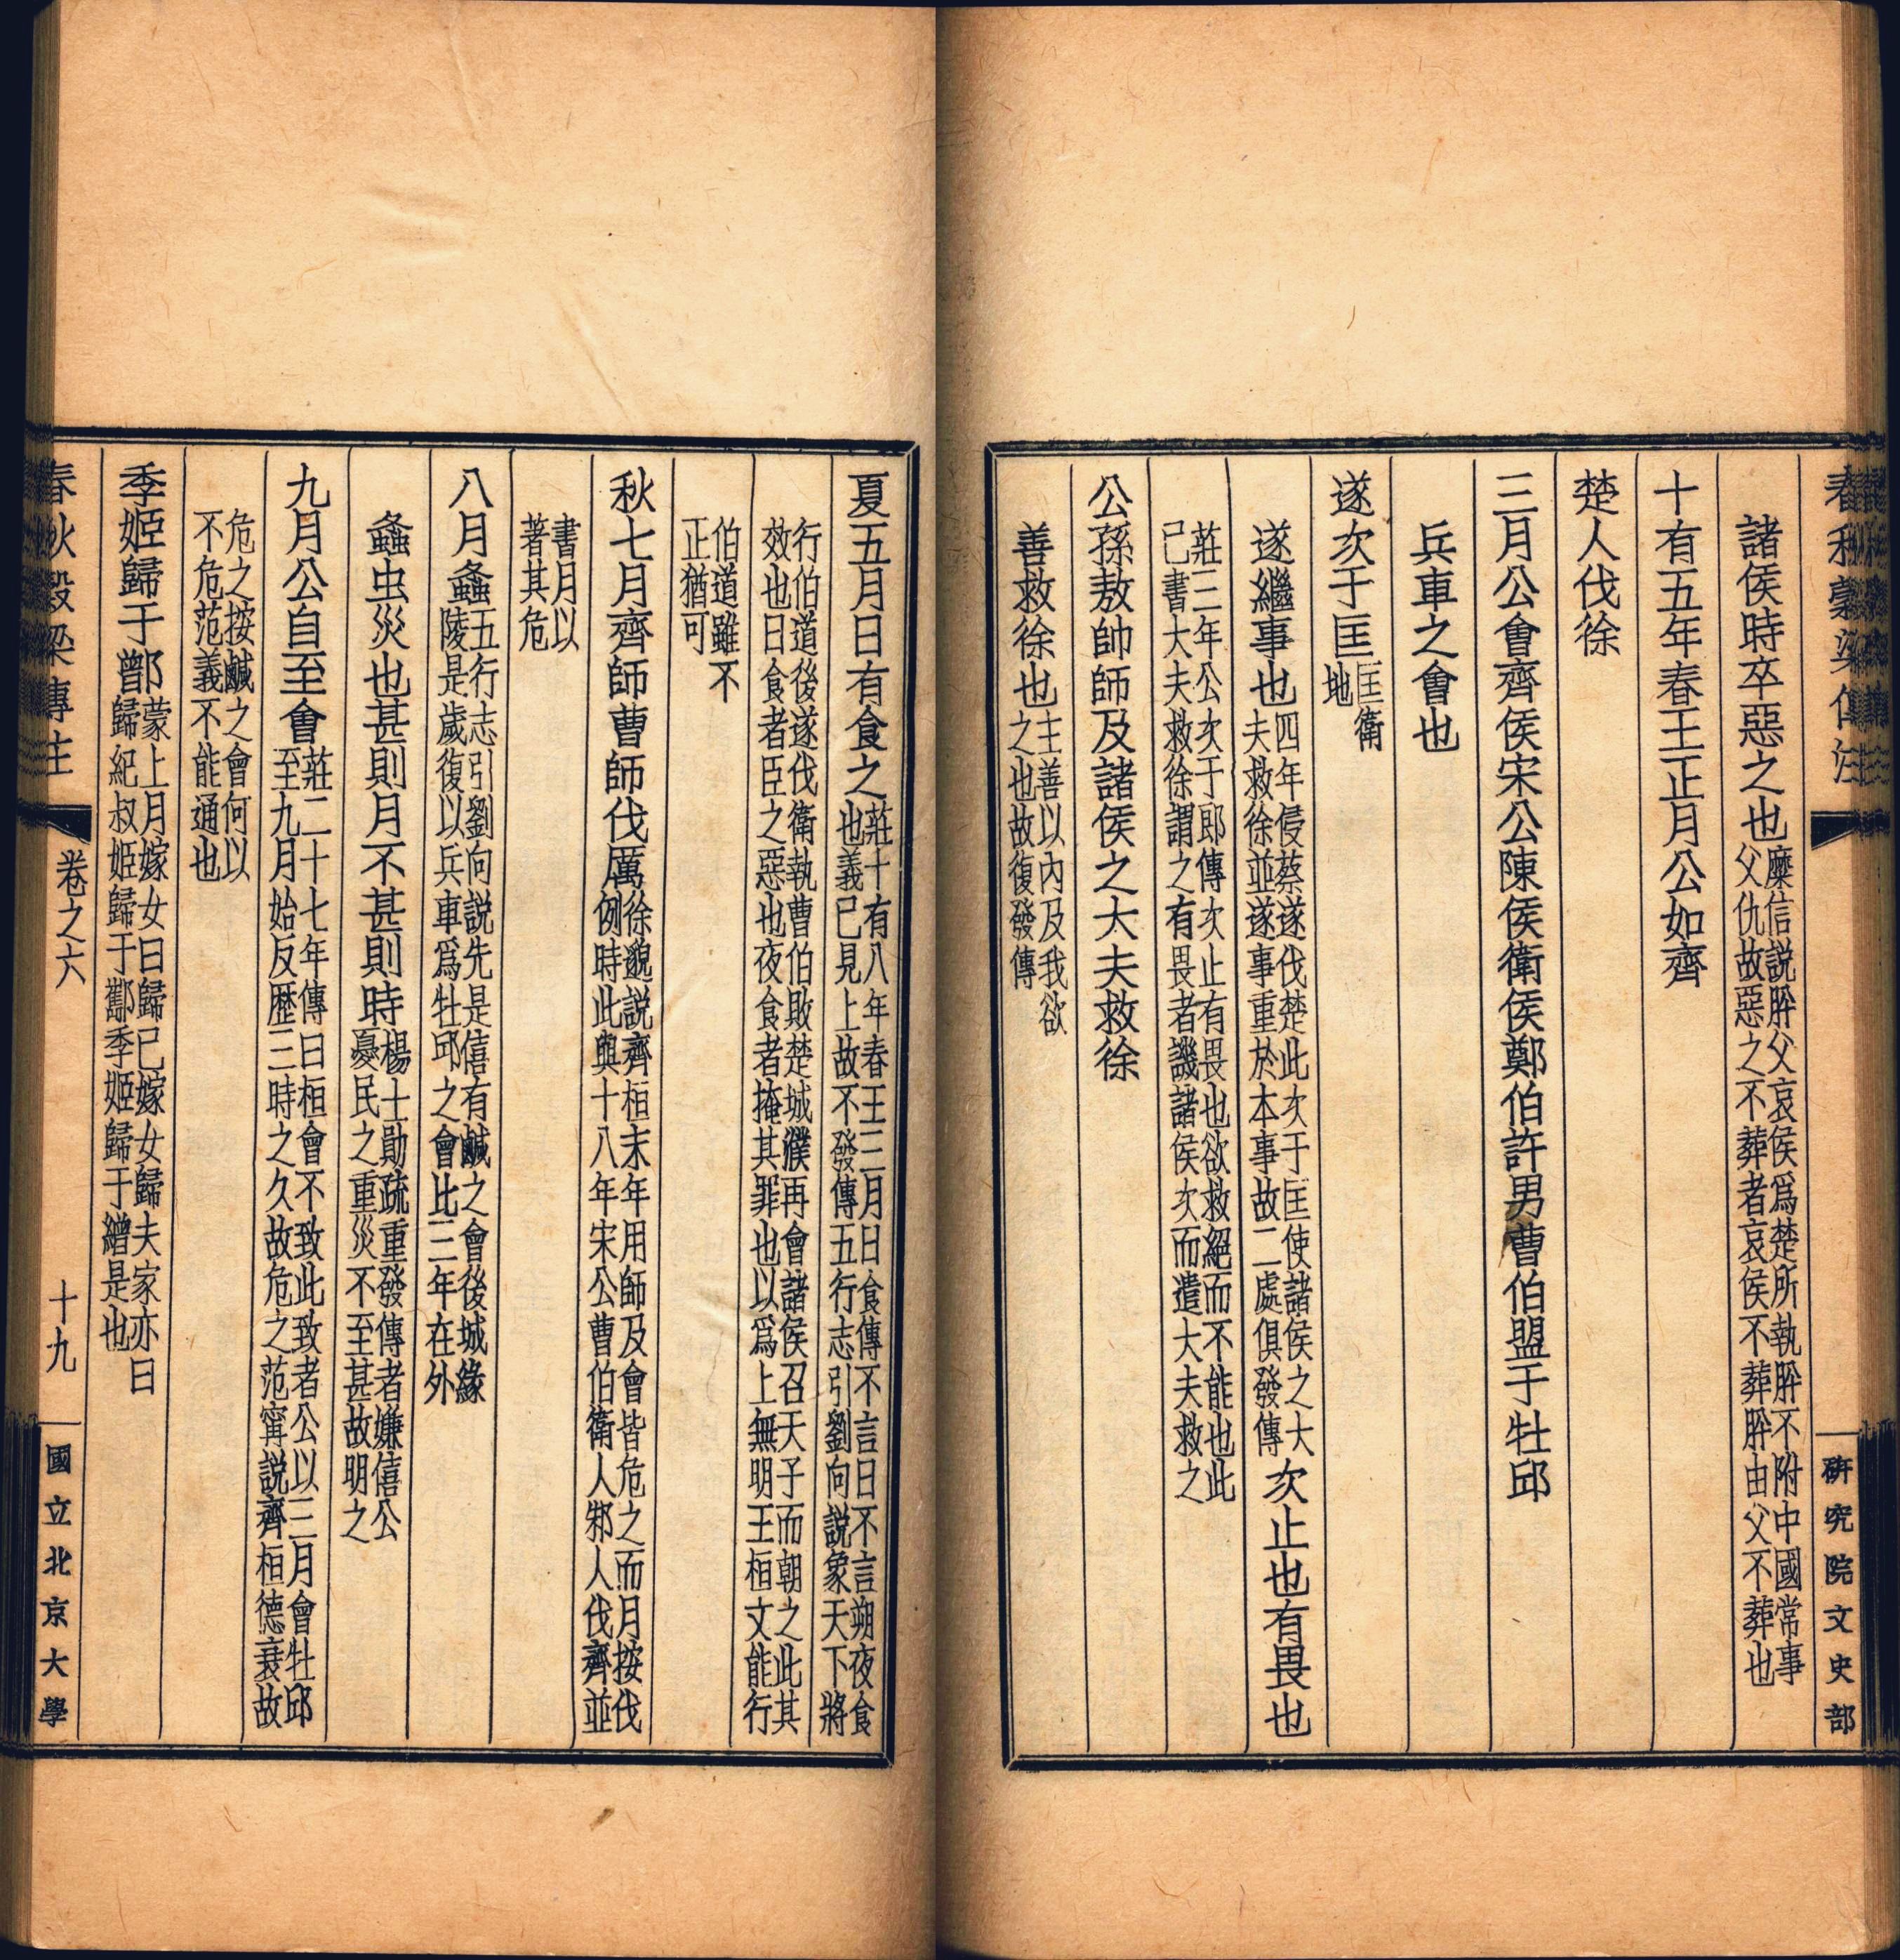 春秋穀梁傳注
研究院文史部
諸侯時卒惡之也麋信説肸父哀侯爲楚所執肸不附中國常事
父仇故惡之不葬者哀侯不葬肸由父不葬也
十有五年春王正月公如齊
楚人伐徐
三月公會齊侯宋公陳侯衛侯鄭伯許男曹伯盟于牡邱
兵車之會也
遂次于匡匡衛
地
遂繼事也四年侵蔡遂伐楚此次于匡使諸侯之大
夫救徐並遂事重於本事故二處俱發傳次止也有畏也
莊三年公次于郎傳次止有畏也欲救絕而不能也此
已書大夫救徐謂之有畏者譏諸侯次而遣大夫救之
公孫敖帥師及諸侯之大夫救徐
善救徐也主善以內及我欲
之也故復發傳
夏五月日有食之莊十有八年春王三月日食傳不言日不言朔夜食
也義已見上故不發傳五行志引劉向説象天下將
行伯道後遂伐衛執曹伯敗楚城濮再會諸侯召天子而朝之此其
效也日食者臣之惡也夜食者掩其罪也以爲上無明王桓文能行
伯道雖不
正猶可
秋七月齊師曹師伐厲徐邈説齊桓末年用師及會皆危之而月按伐
例時此與十八年宋公曹伯衛人邾人伐齊並
書月以
著其危
八月螽五行志引劉向説先是僖有鹹之會後城緣
陵是歲復以兵車爲牡邱之會比三年在外
螽虫災也甚則月不甚則時楊士勛疏重發傳者嫌僖公
憂民之重災不至甚故明之
九月公自至會莊二十七年傳曰桓會不致此致者公以三月會牡邱
至九月始反歷三時之久故危之范甯説齊桓德衰故
危之按鹹之會何以
不危范義不能通也
季姬歸于鄫蒙上月嫁女曰歸已嫁女歸夫家亦曰
歸紀叔姬歸于酅季姬歸于繒是也
春秋穀梁傳注
卷之六
十九
國立北京大學